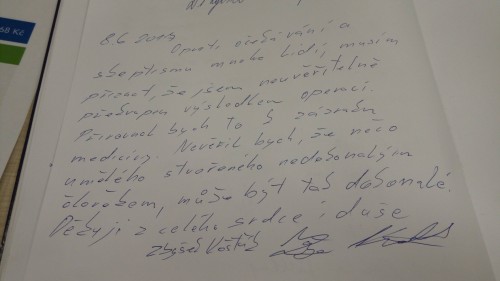 68 Kč
8.6 2009
Oproti očekávání a
skeptismu mnoha lidí, musím
přiznat, že jsem neuvěřitelně
překvapen výsledkem operací.
Přirovnal bych to k zázraku
medicíny. Nevěřil bych, že něco
umělého stvořeného nedokonalým
člověkem, může být tak dokonalé.
Děkuji z celého srdce i duše
Zbyšek